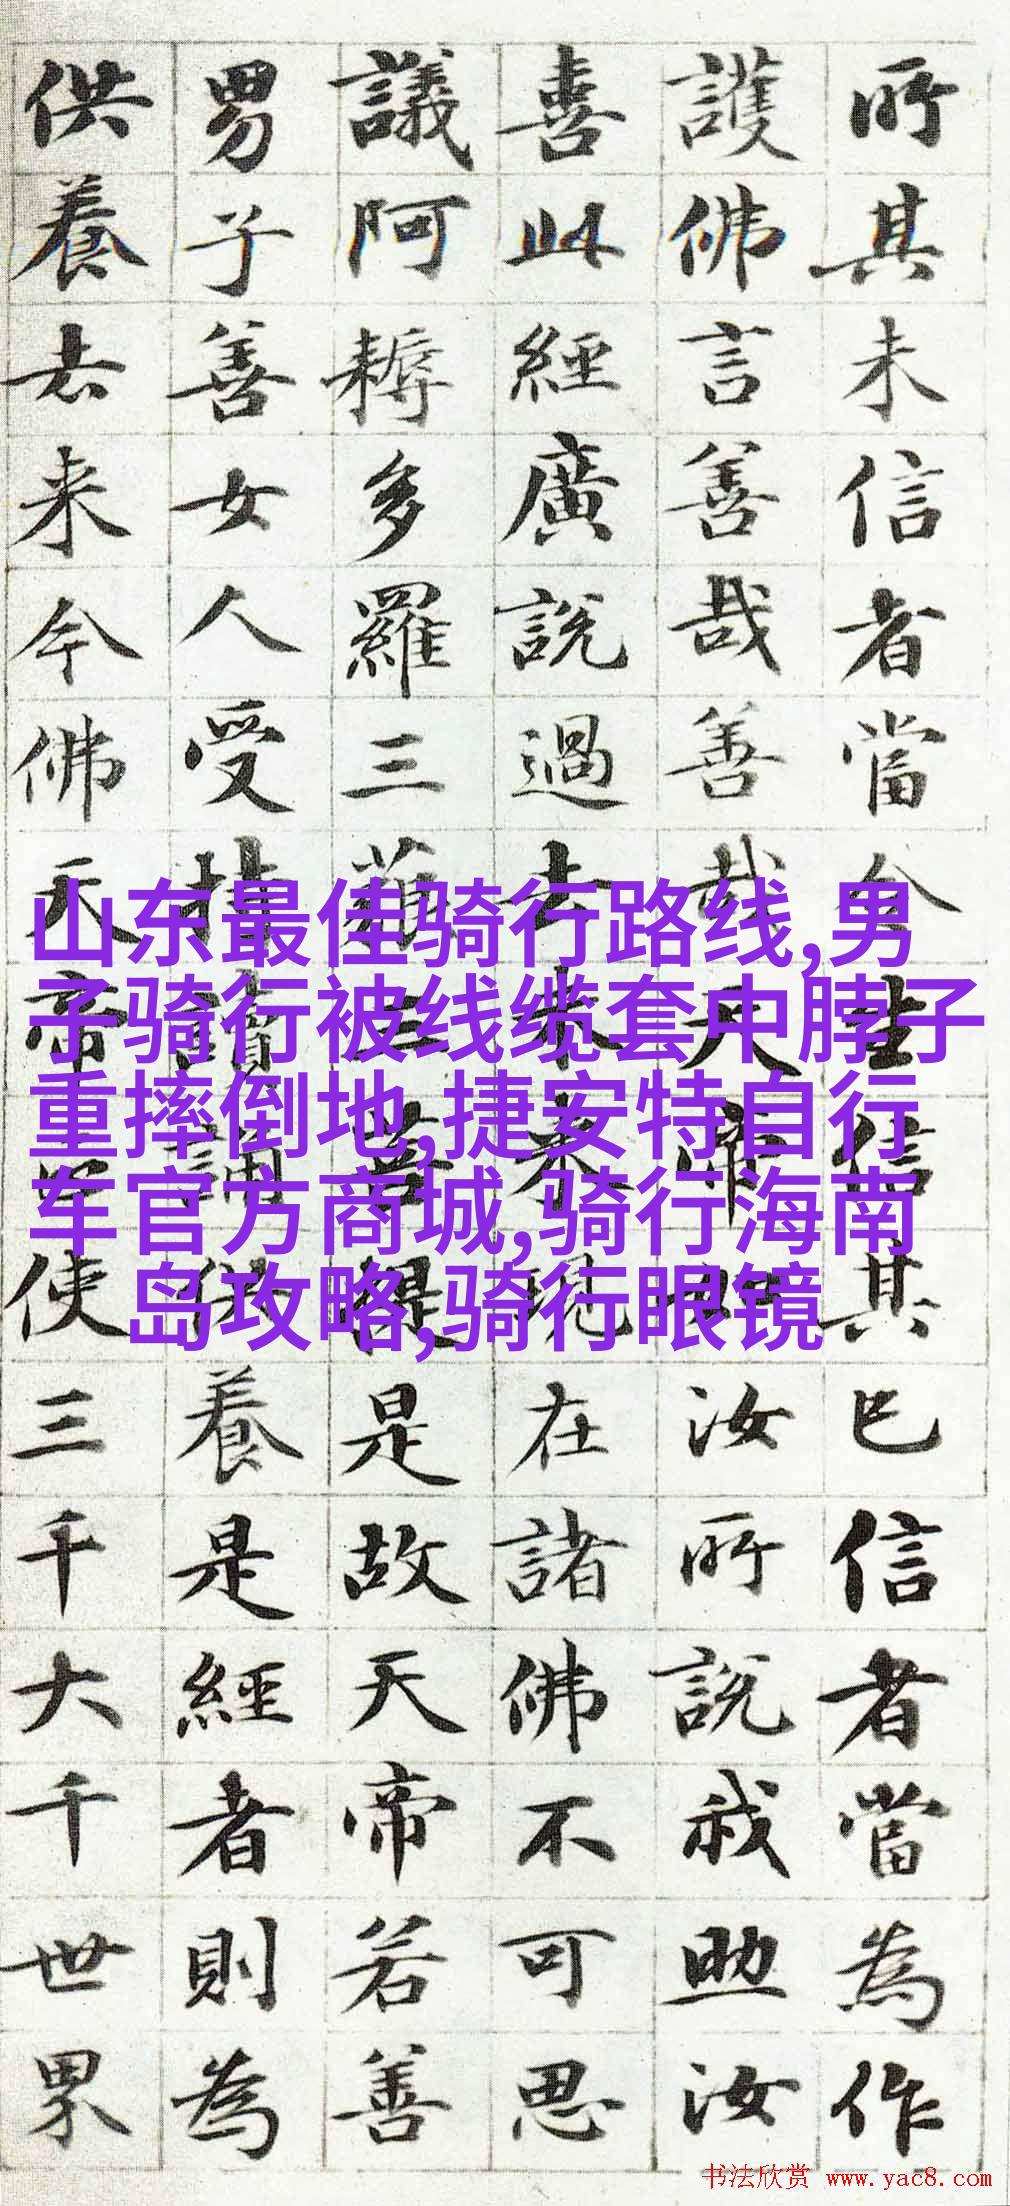 所其未信者當令生信其已信者當為作
護佛言善哉善哉天帝如汝所說我助汝
喜此經廣說過去未来現在諸佛不可思
議阿耨多羅三藐三菩提是故天帝若善
男子善女人受持讀誦供養是經者則為
供養去来今佛天帝正使三千大千世界
山东最佳骑行路线,男
子骑行被线缆套中脖子
重摔倒地,捷安特自行
车官方商城,骑行海南
岛攻略,骑行眼镜
书法欣赏 www.yac8.com